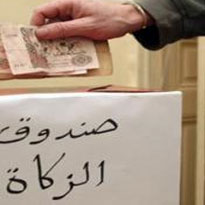 صندوق
الزكاة